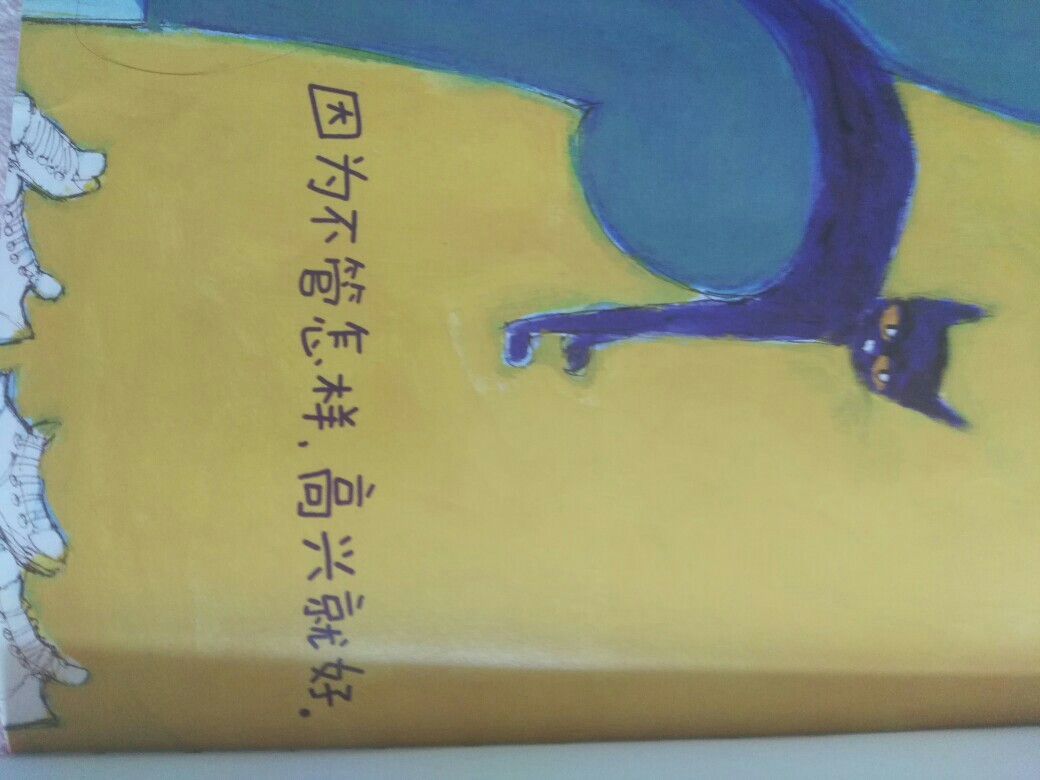 因为不管怎样,高兴就好.